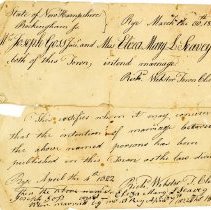 State of New Hampshire
Rockingham ss. Rye March
Mr Joseph Goss Jun. and Miss Eliza Mary D. Seavey
both of this Town, intend marriage
Richd Webster Town Cler
This certifies whom it may concern
that the intention of marriage between
the above named persons has been
published in this Town as the law
Rye April the 4th 1822 Richd Webster T. Cle
then the above named
Joseph Goss and Eliza Mary D Seavey
were married by me